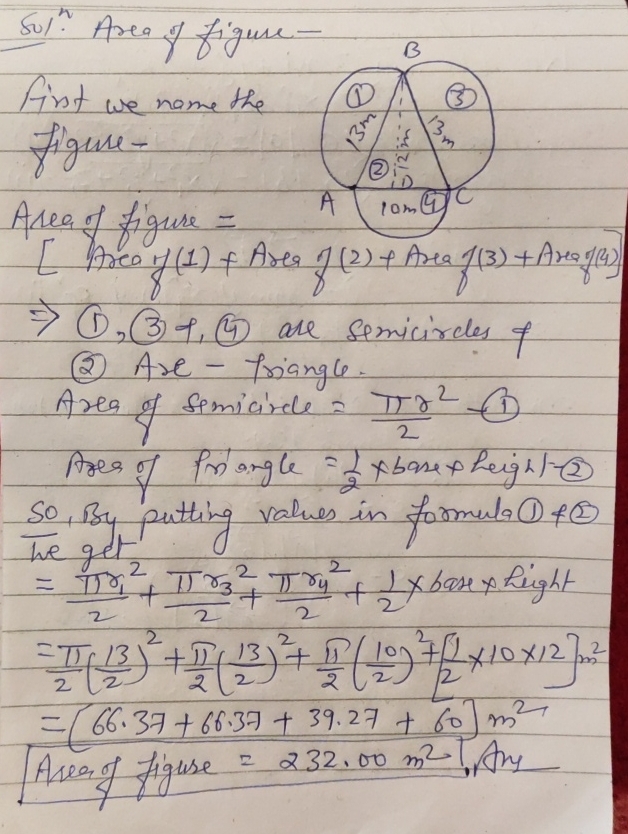 Solⁿ. Area of figure —
B
First we name the
figure -
① ③
13m 12m 13m
②
A D C
10m ④
Area of figure =
[ Area of (1) + Area of (2) + Area of (3) + Area of (4)]
⇒ ①, ③ &, ④ are semicircles &
② Are - Triangle.
Area of semicircle = πr²/2 -①
Area of Triangle = 1/2 × base × height -②
So, By putting values in formula ① & ②
we get
= πr₁²/2 + πr₃²/2 + πr₄²/2 + 1/2 × base × height
= π/2 (13/2)² + π/2 (13/2)² + π/2 (10/2)² + [1/2 × 10 × 12] m²
= [66.37 + 66.37 + 39.27 + 60] m²
Area of figure = 232.00 m². Ans